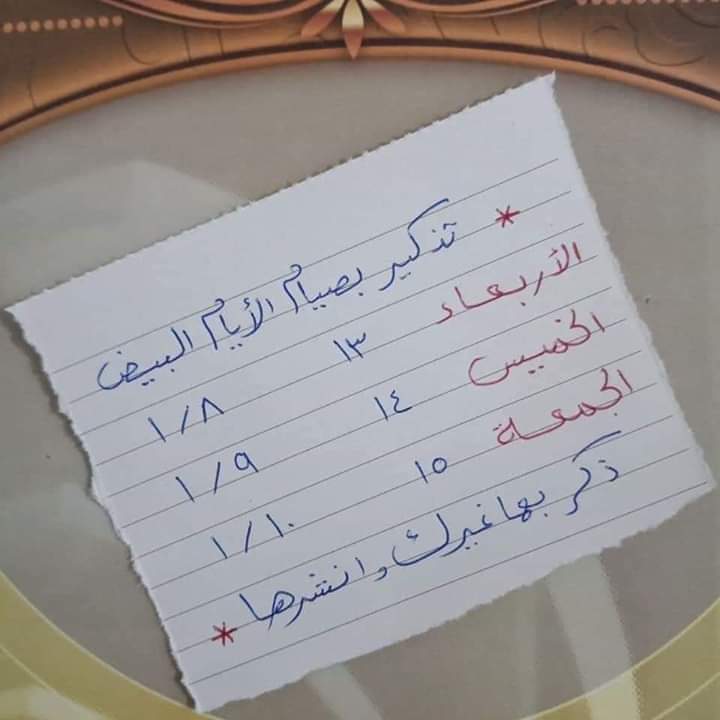 * تذكير بصيام الأيام البيض
الأربعاء ١٣ ١/٨
الخميس ١٤ ١/٩
الجمعة ١٥ ١/١٠
ذكر بها غيرك وانشرها *